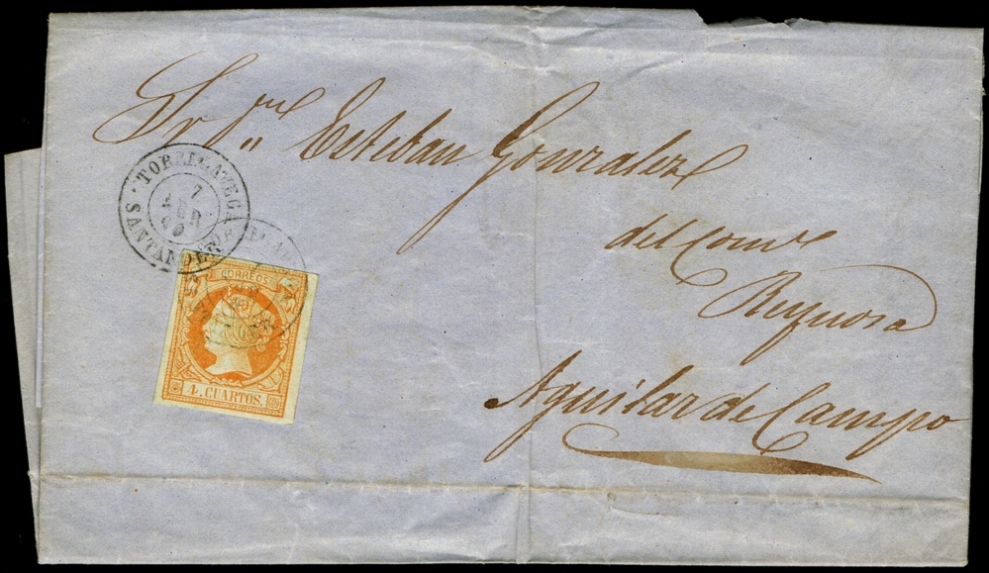 Sr Dn Esteban Gonzalez
del Comº
Reynosa
Aguilar de Campo
TORRELAVEGA
7
ABR
60
SANTANDER
CORREOS
4. CUARTOS.